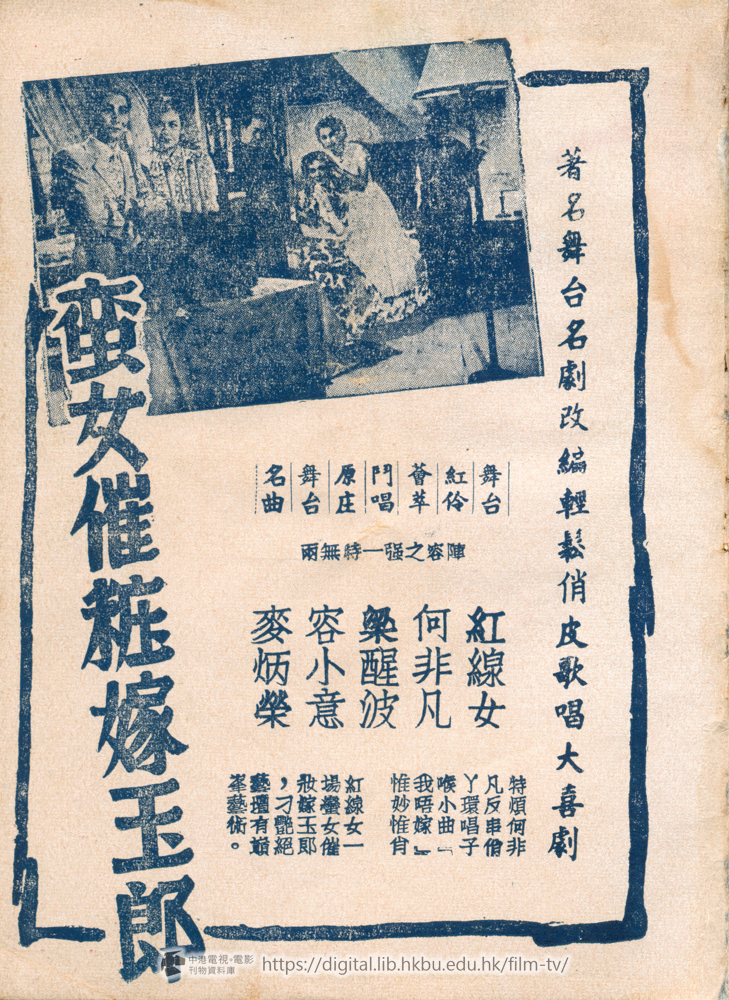 著名舞台名劇改編輕鬆俏皮歌唱大喜劇
舞台
紅伶
薈萃
鬥唱
原庄
舞台
名曲
陣容之强一特無兩
紅線女
何非凡
梁醒波
容小意
麥炳榮
特煩何非
凡反串俏
丫環唱子
喉小曲「
我唔嫁」
惟妙惟肖
紅線女一
場蠻女催
妝嫁玉郎
，刁艷絕
藝壇有巔
峯藝術。
蛮女催粧嫁玉郎
中港電視・電影
刊物資料庫
https://digital.lib.hkbu.edu.hk/film-tv/